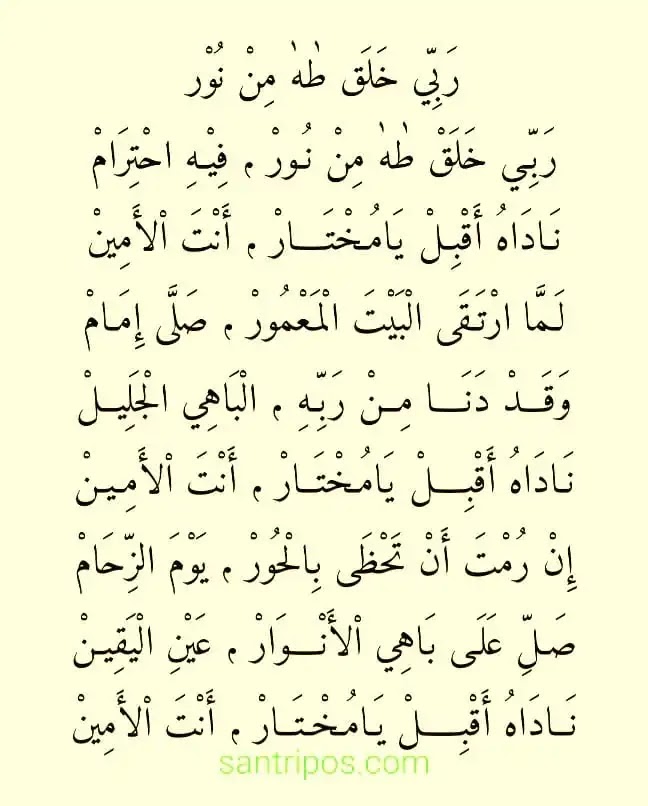 رَبِّي خَلَقَ طٰهٰ مِنْ نُوْر
رَبِّي خَلَقْ طٰهٰ مِنْ نُورْ ، فِيْهِ احْتِرَامْ
نَادَاهُ أَقْبِلْ يَامُخْتَارْ ، أَنْتَ اْلأَمِينْ
لَمَّا ارْتَقَى الْبَيْتَ الْمَعْمُورْ ، صَلَّى إِمَامْ
وَقَدْ دَنَا مِنْ رَبِّهِ ، الْبَاهِي الْجَلِيلْ
نَادَاهُ أَقْبِلْ يَامُخْتَارْ ، أَنْتَ اْلأَمِينْ
إِنْ رُمْتَ أَنْ تَحْظَى بِالْحُورْ ، يَوْمَ الزِّحَامْ
صَلِّ عَلَى بَاهِي اْلأَنْوَارْ ، عَيْنِ الْيَقِينْ
نَادَاهُ أَقْبِلْ يَامُخْتَارْ ، أَنْتَ اْلأَمِينْ
santripos.com